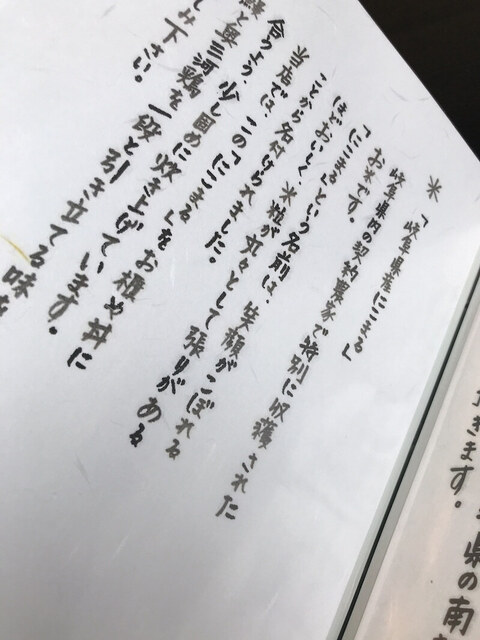 米「岐阜県産にこまる」
岐阜県内の契約農家で特別に収穫された
お米です。
「にこまる」という名前は、笑顔がこぼれる
ほどおいしく、米粒が丸々として張りがある
ことから名付けられました。
当店では、この「にこまる」をお櫃や丼に
合うよう、少し固めに炊き上げています。
鰻と奥三河鶏を一段と引き立てる味を
しみ下さい。
きます。
県の南